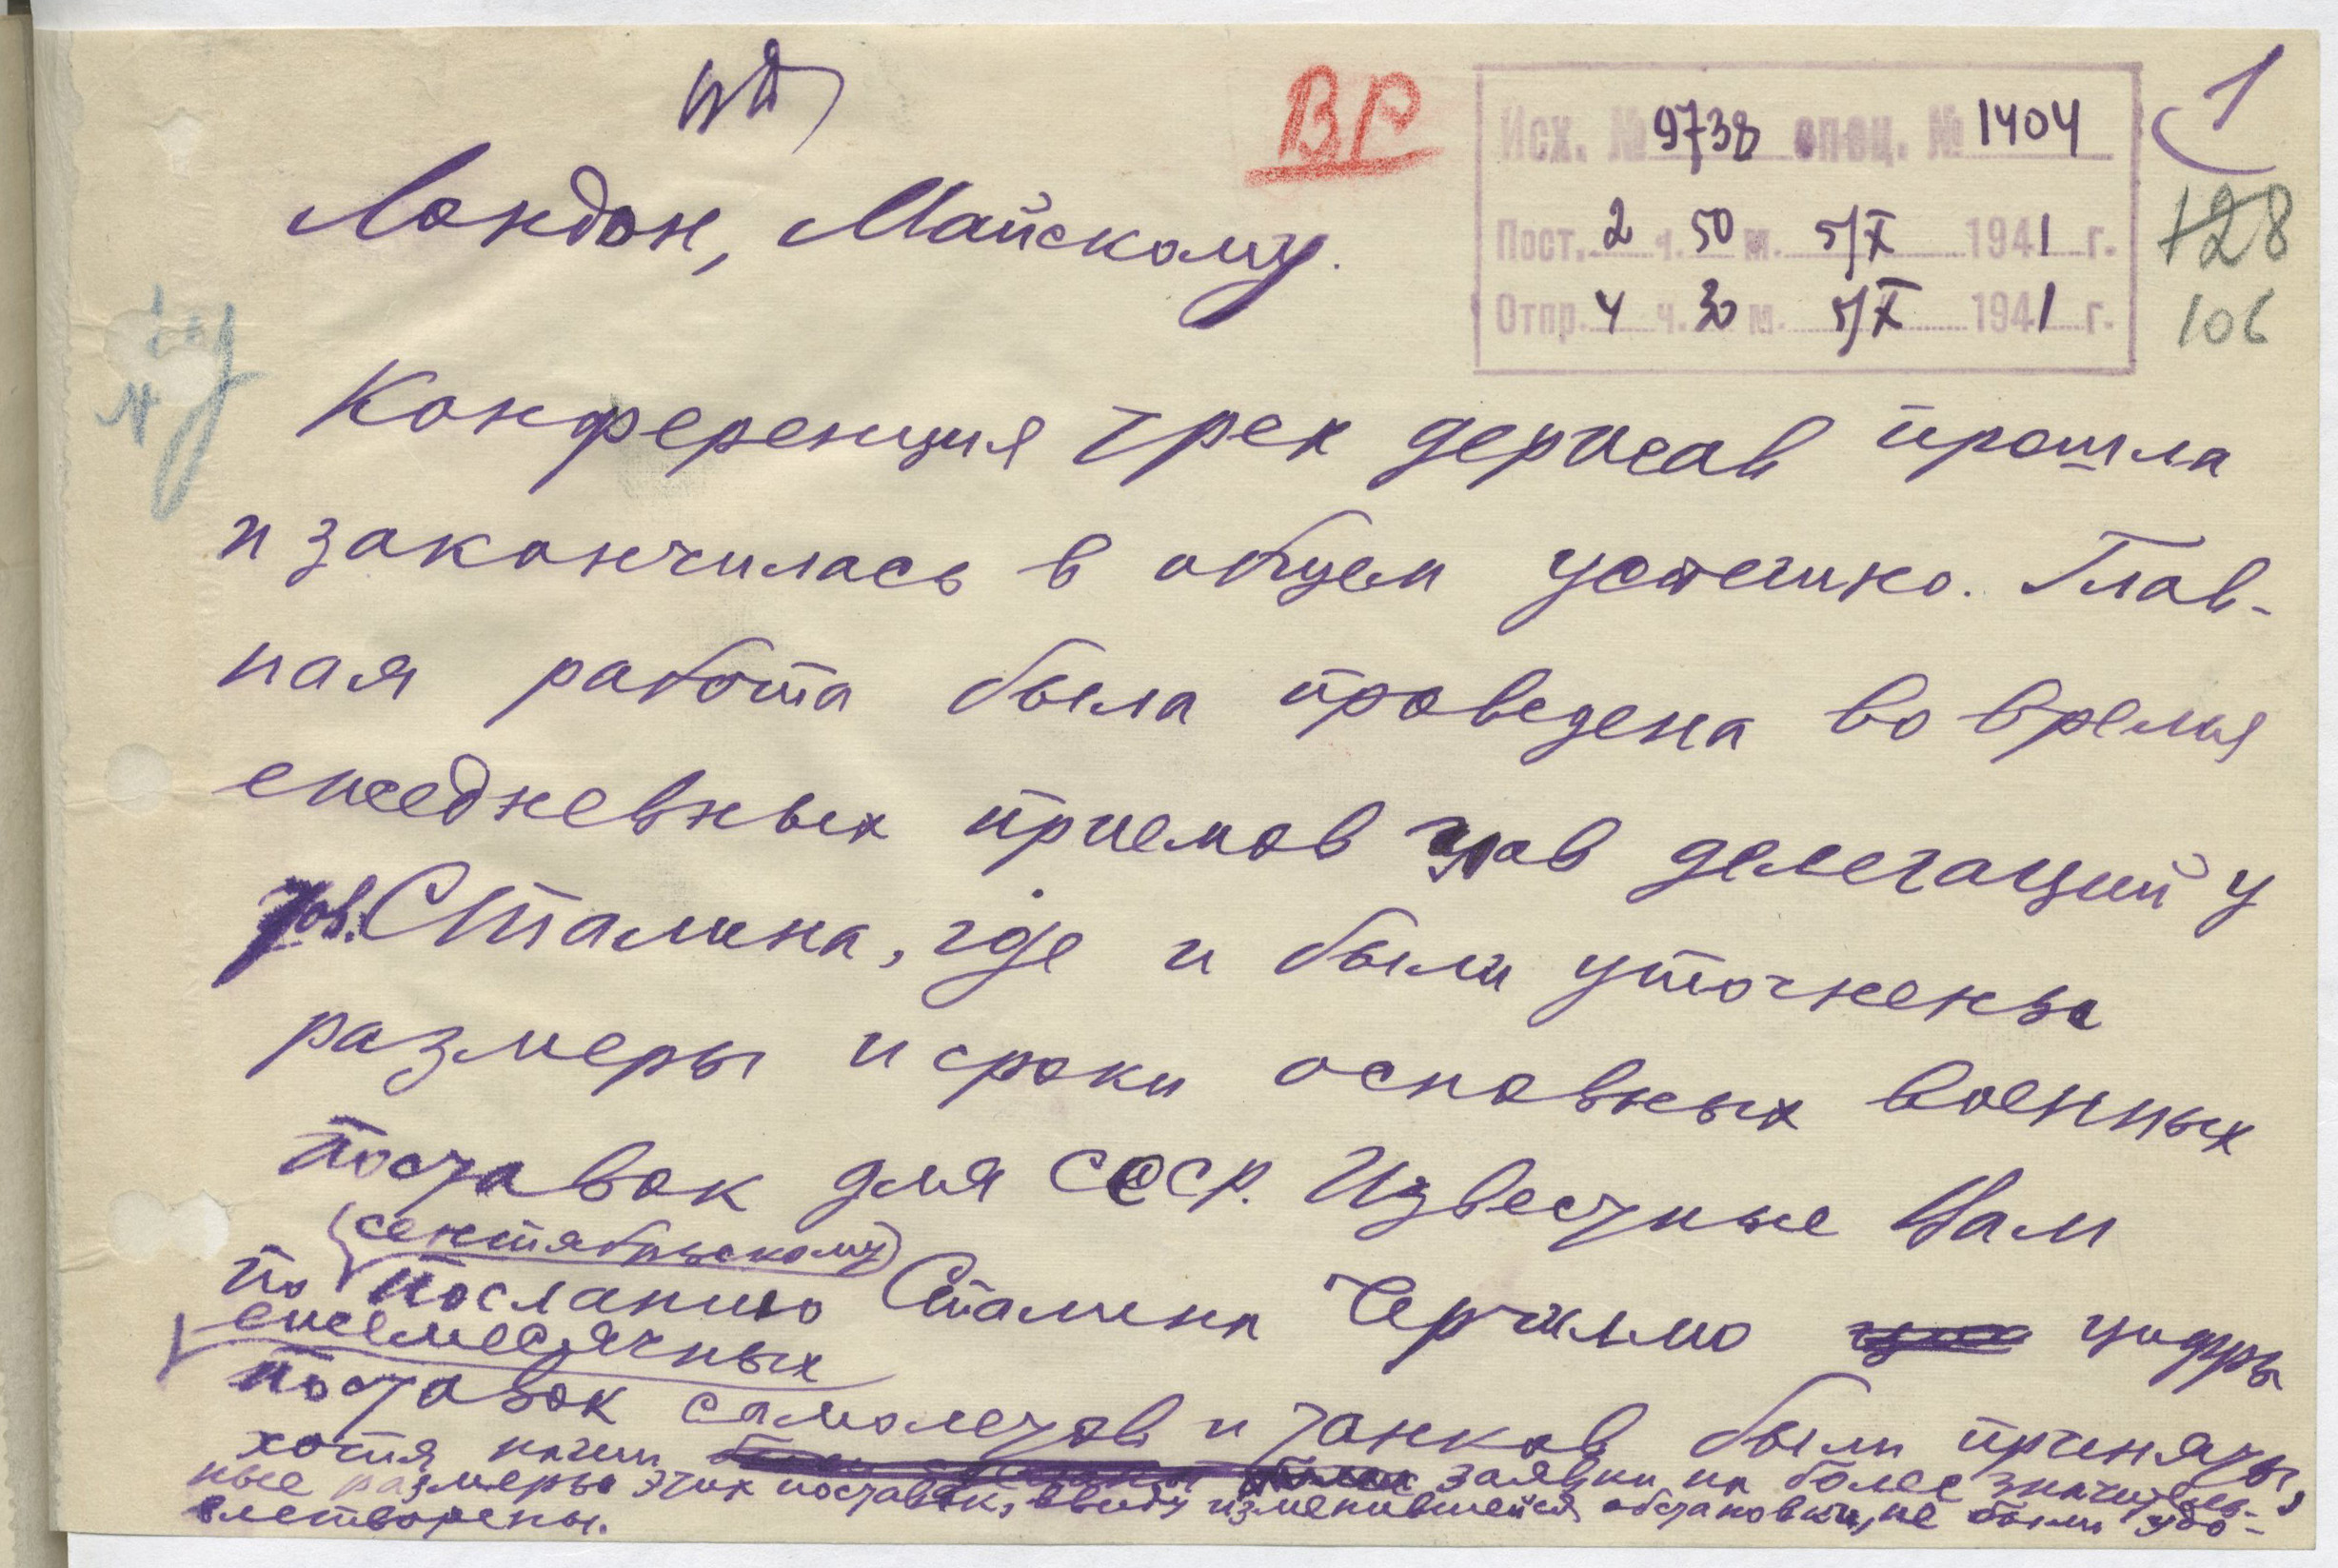 ВР
Исх. № 9738 спец. № 1404
Пост. 2 ч. 50 м. 5/X 1941 г.
Отпр. 4 ч. 30 м. 5/X 1941 г.
1
128
106
Лондон, Майскому.
Конференция трех держав прошла
и закончилась в общем успешно. Глав-
ная работа была проведена во время
ежедневных приемов глав делегаций у
тов. Сталина, где и были уточнены
размеры и сроки основных военных
поставок для СССР. Известные Вам
сентябрьскому
по посланию Сталина Черчиллю цифры
ежемесячных
поставок самолетов и танков были приняты,
хотя наши заявки на более значитель-
ные размеры этих поставок, ввиду изменившейся обстановки, не были удо-
влетворены.